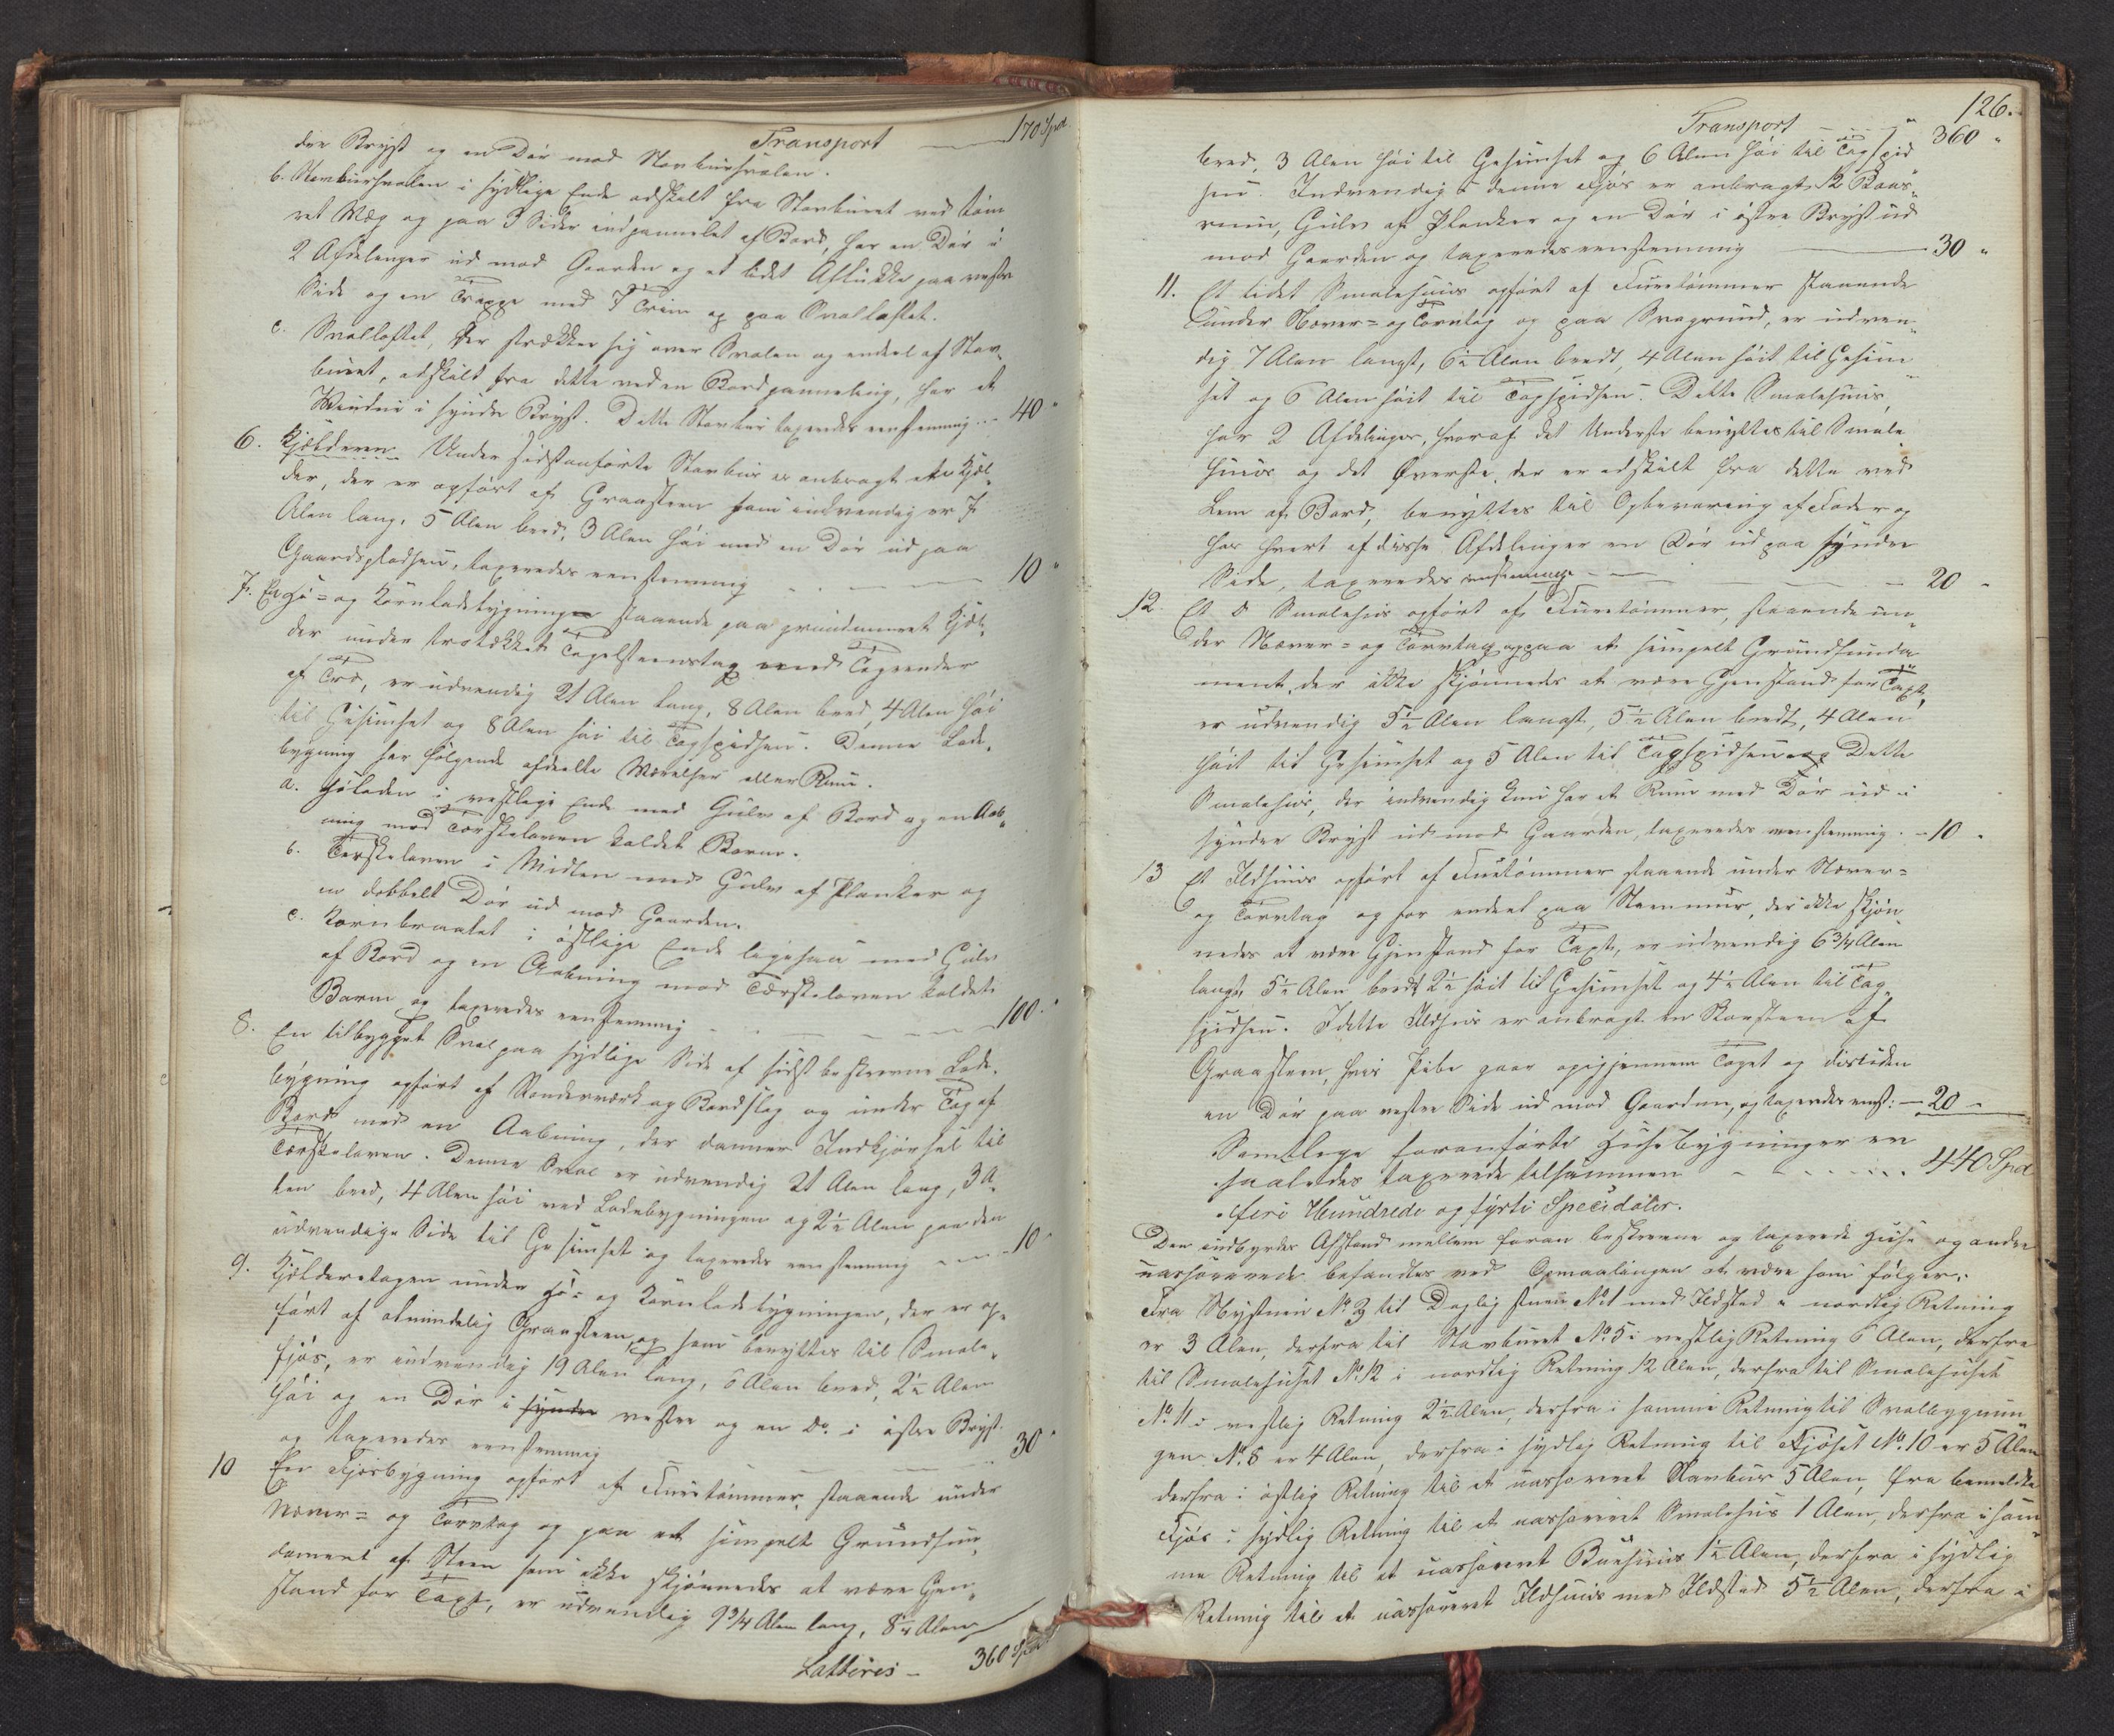 Transport — 170 Spd.
dre Bryst og en Dør mod Stavbursvalen.
b. Stavbursvalen i sydlige Ende adskilt fra Stavburet ved tøm
ret Væg og paa 3 Sider indpannelet af Bord, har en Dør i
2 Afdelinger ud mod Gaarden og et lidet Aflukke paa vestre
Side og en Trappe med 7 Trin op paa Svalloftet.
c. Svalloftet, der strækker sig over Svalen og endeel af Stav-
buret, adskilt fra dette ved en Bordpanneling, har et
Vindue i søndre Bryst. Dette Stavbur taxeredes eenstemmig - - 40 "
6. Kjælderen. Under sidstanførte Stavbur er anbragt en Kjæl-
der, der er opført af Graasteen som indvendig er 7
Alen lang, 5 Alen bred, 3 Alen høi med en Dør ud paa
Gaardspladsen, taxeredes eenstemmig — 10 "
7. En Hø- og Kornladebygning staaende paa grundmuret Kjæl-
der under træktækket Tagelsteenstag med Tagrender
af Træ, er udvendig 21 Alen lang, 8 Alen bred, 4 Alen høi
til Gesimset og 8 Alen høi til Tagspidsen. Denne Lade-
bygning har følgende afdeelte Værelser eller Rum.
a. Høladen i vestlige Ende med Gulv af Bord og en Aab-
ning mod Tærskeloven kaldet Barm.
b. Tærskeloven i Midten med Gulv af Planker og
en dobbelt Dør ud mod Gaarden.
c. Kornbraatet i østlige Ende ligesaa med Gulv
af Bord og en Aabning mod Tærskeloven kaldet
Barm og taxeredes eenstemmig — 100 "
8. En tilbygget Sval paa sydlige Side af sidst beskrevne Lade-
bygning opført af Stenderværk og Bordslag og under Tag af
Bord med en Aabning, der danner Indkjørsel til
Tærskeloven. Denne Sval er udvendig 21 Alen lang, 3 A-
len bred, 4 Alen høi ved Ladebygningen og 2½ Alen paa den
udvendige Side til Gesimset og taxeredes eenstemmig - - 10 "
9. Kjælderetagen under Hø- og Kornladebygningen, der er op-
ført af almindelig Graasteen, og som benyttes til Smale-
fjøs, er indvendig 19 Alen lang, 6 Alen bred, 2½ Alen
høi og en Dør i søndre vestre og en Do. i østre Bryst.
og taxeredes eenstemmig — 30 "
10 En Fjøsbygning opført af Furetømmer, staaende under
Næver- og Tørvtag og paa et simpelt Grundfun-
dament af Steen som ikke skjønnedes at være Gjen-
stand for Taxt, er udvendig 9¾ Alen lang, 8¼ Alen
Latteris - 360 Spd
126.
Transport — 360 "
bred, 3 Alen høi til Gesimset og 6 Alen høi til Tagspid
sen. Indvendig i denne Fjøs er anbragt 12 Baas-
rum, Gulv af Planker og en Dør i østre Bryst ud
mod Gaarden og taxeredes eenstemmig — 30 "
11. Et lidet Smalehuus opført af Furetømmer staaende
under Næver- og Tørvtag og paa Svagrund, er udven-
dig 7 Alen langt, 6½ Alen bredt, 4 Alen høit til Gesim-
set og 6 Alen høit til Tagspidsen. Dette Smalehuus
har 2 Afdelinger, hvoraf det Underste benyttes til Smale
huus og det Øverste, der er adskilt fra dette ved
Lem af Bord, benyttes til Opbevaring af Foder og
har hvert af disse Afdelinger en Dør ud paa søndre
Side, taxeredes eenstemmig — 20 -
12. Et d Smalehus opført af Furetømmer, staaende un-
der Næver- og Tørvtag og paa et simpelt Grundfunda
ment, der ikke skjønnedes at være Gjenstand for Taxt,
er udvendig 5½ Alen langt, 5½ Alen bredt, 4 Alen
høit til Gesimset og 5 Alen til Tagspidsen. Dette
Smalehus, der indvendig kun har et Rum med Dør ud i
søndre Bryst ud mod Gaarden, taxeredes eenstemmig. - 10 -
13 Et Ildhuus opført af Furetømmer staaende under Næver-
og Tørvtag og for endeel paa Steenmur, der ikke skjøn-
nedes at være Gjenstand for Taxt, er udvendig 6¾ Alen
langt, 5½ Alen bredt 2½ høit til Gesimset og 4½ Alen til Tag-
spidsen. I dette Ildhus er anbragt en Skorsteen af
Graasteen, hvis Pibe gaar opigjennem Taget og desuden
en Dør paa vestre Side ud mod Gaarden, og taxeredes eenst: - 20 -
Samtlige foranførte Huusebygninger er
saaledes taxerede tilsammen - - - 440 Spd
fire Hundrede og fyrti Speciedaler.
Den indbyrdes Afstand mellem foran beskrevne og taxerede Huse og andre
uassurerede befandtes ved Opmaalingen at være som følger:
Fra Nystuen No 3 til Daglig stuen No 1 med Ildsted i nordlig Retning
er 3 Alen, derfra til Stavburet No. 5 i vestlig Retning 6 Alen, derfra
til Smalehuset No. 12 i nordlig Retning 12 Alen, derfra til Smalehuset
No. 11 i vestlig Retning 2½ Alen, derfra i samme Retning til Svalbygnin
gen No. 8 er 4 Alen, derfra i sydlig Retning til Fjøset No. 10 er 5 Alen
derfra i østlig Retning til et uassureret Stavbur 5 Alen, fra bemeldte
Fjøs i sydlig Retning til et uassureret Smalehus 1 Alen, derfra i sam-
me Retning til et uassureret Buehuus 1½ Alen, derfra i sydlig
Retning til et uassureret Ildhuus med Ildsted 5½ Alen, derfra i